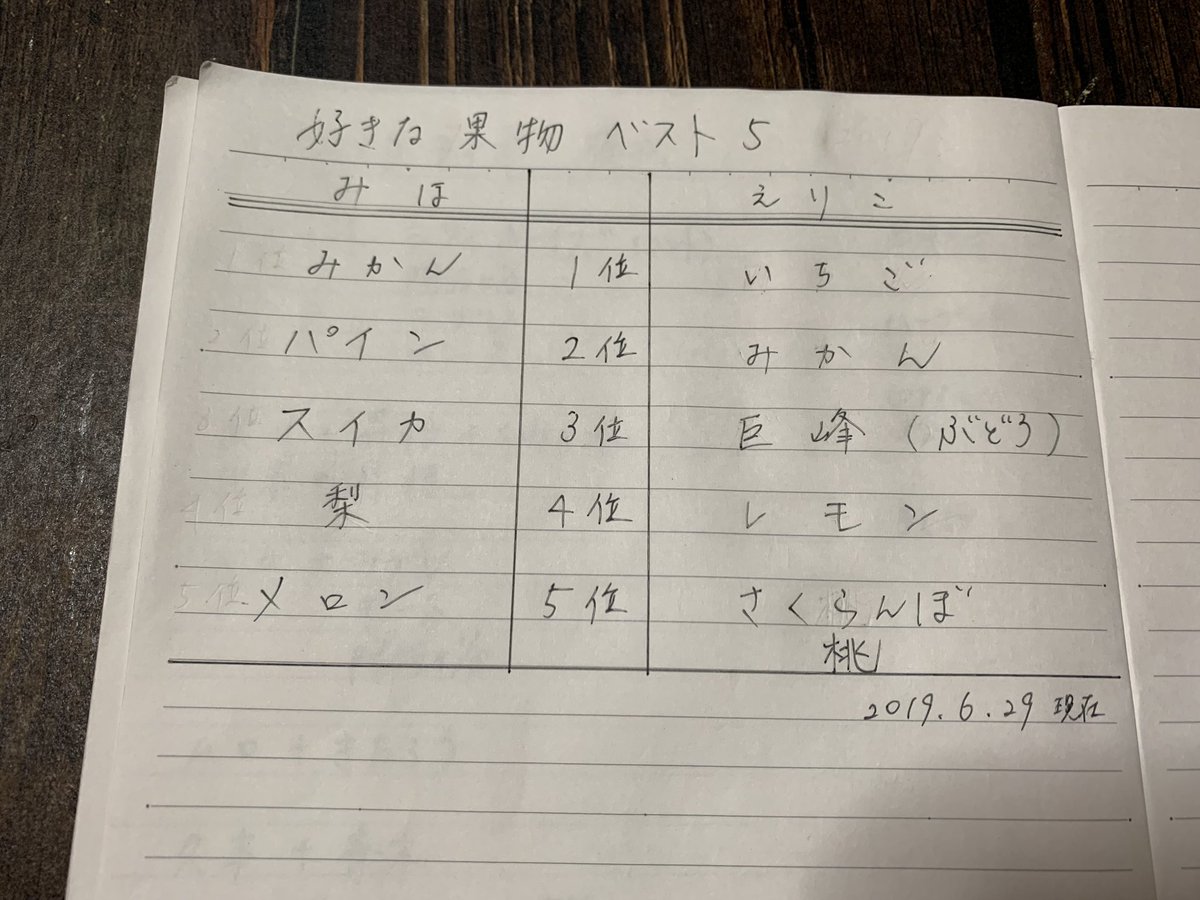 好きな果物 ベスト5
みほ えりこ
みかん 1位 いちご
パイン 2位 みかん
スイカ 3位 巨峰(ぶどう)
梨 4位 レモン
メロン 5位 さくらんぼ
桃
2019.6.29 現在